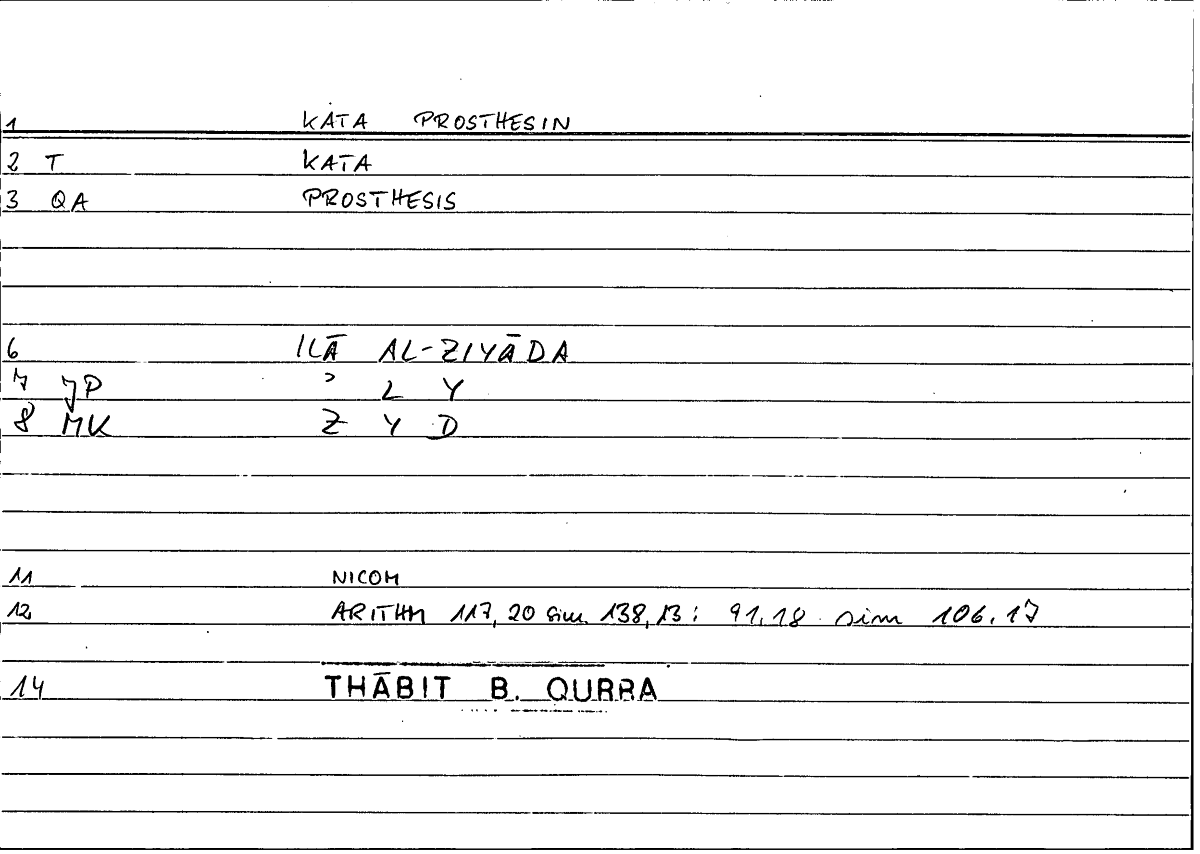 1 KATA PROSTHESIN
2 T KATA
3 QA PROSTHESIS
6 ILĀ AL-ZIYĀDA
7 JP ʾ L Y
8 MK Z Y D
11 NICOM
12 ARITHM 117,20 sim. 138,13: 91,18 sim 106,17
14 THĀBIT B. QURRA